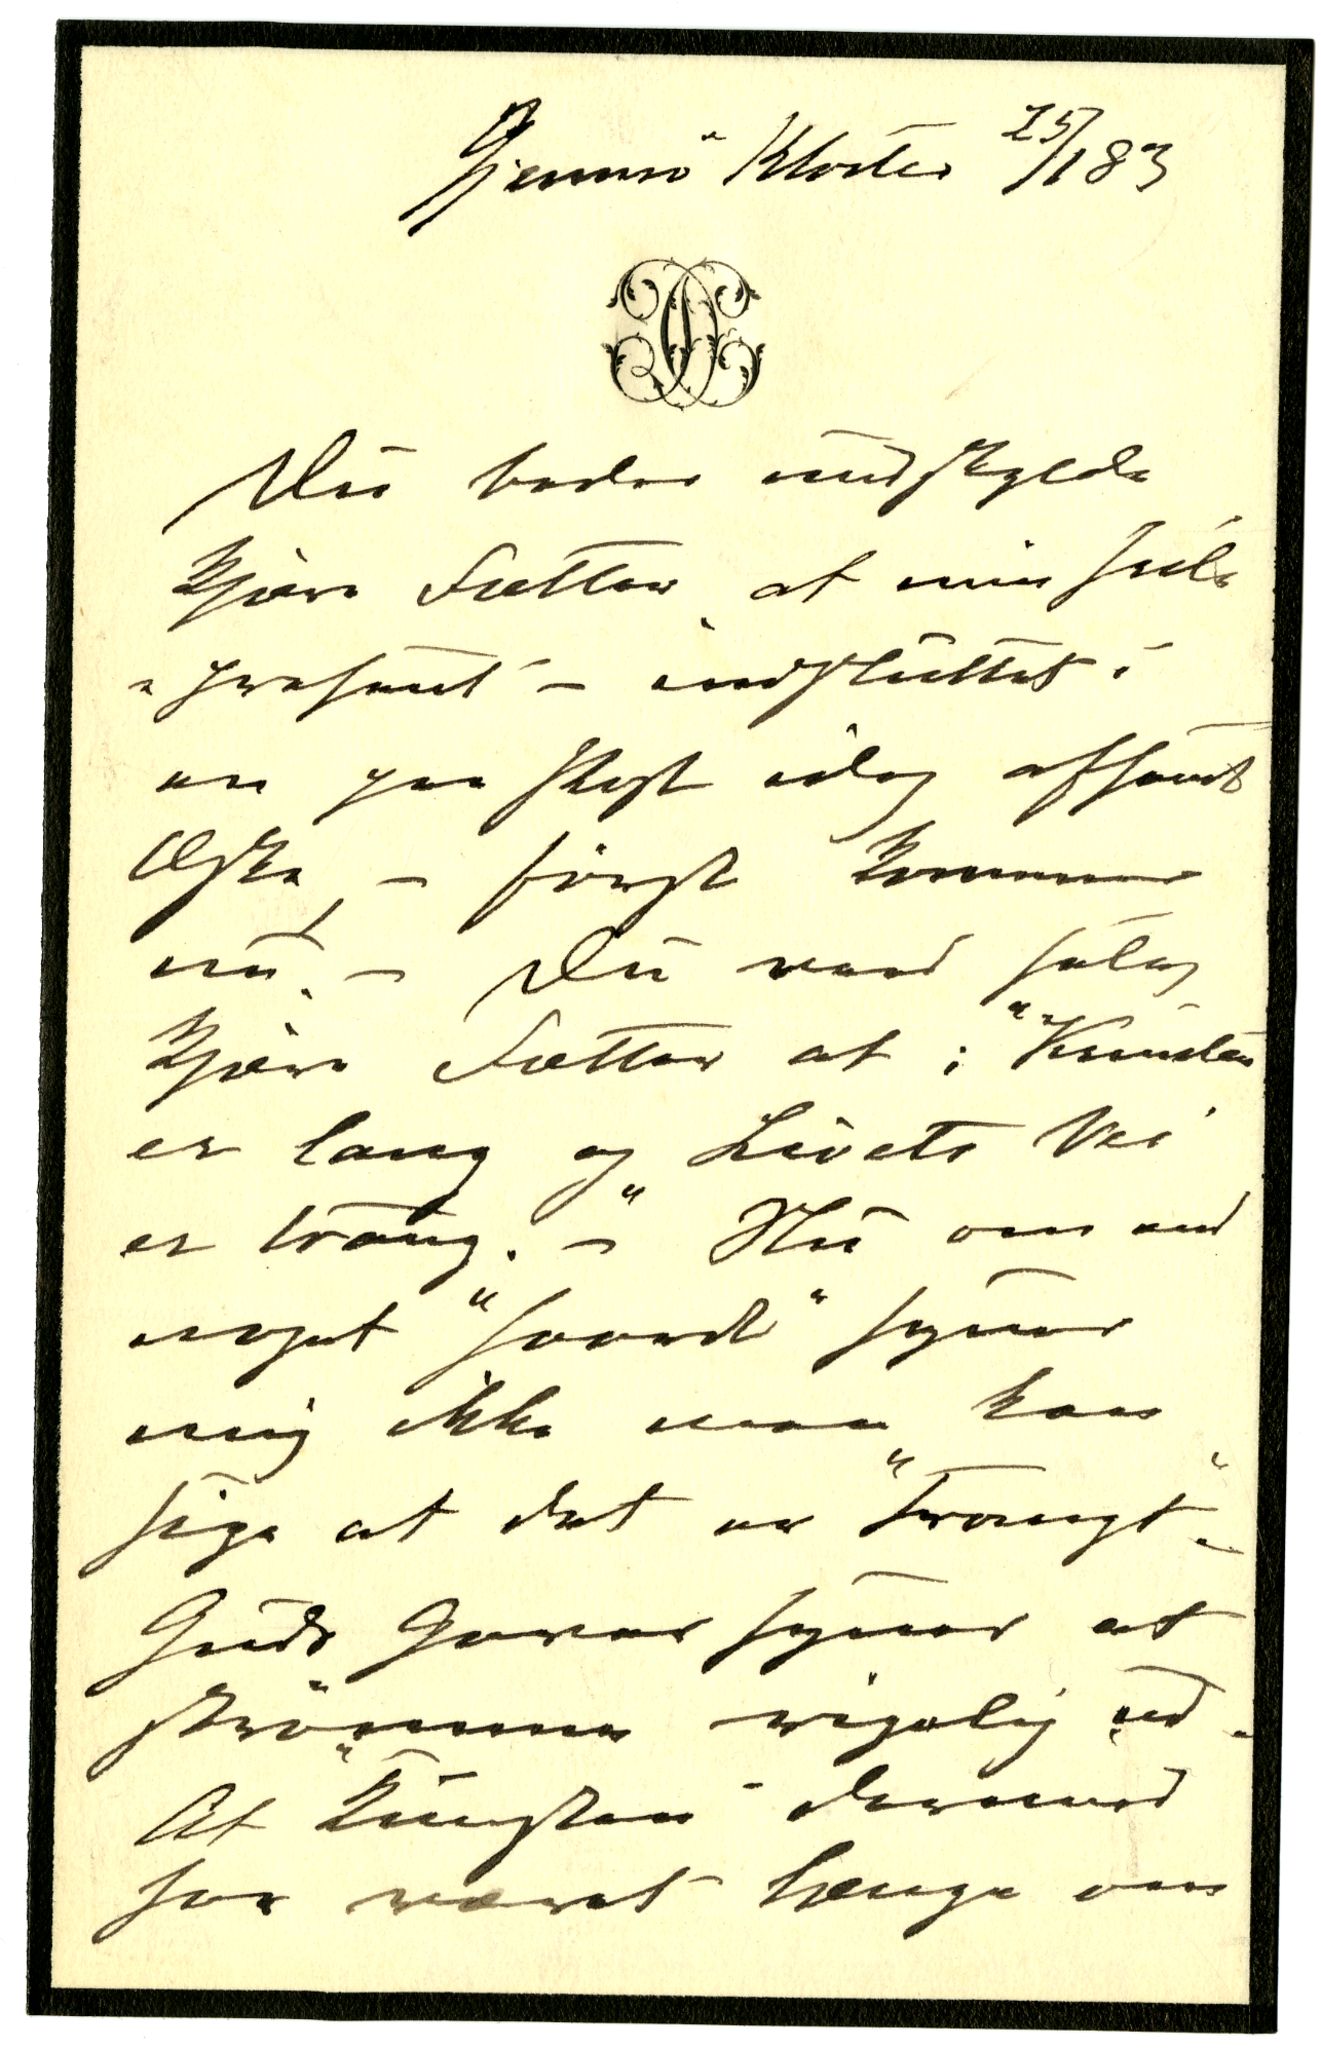 Gjemsö Kloster 25/1 83
Du beder undskylde
kjære Fætter at min Jule
"præsent" – indsluttet i
en paa Skist idag afsendt
Æske, – först kommer
nu. – Du veed jolag
kjære Fætter at: "Kunsten
er lang og Livets Vei
er trang." – Nu om end
noget "haardt" synes
mig ikke man kan
sige at det er "Trangt".
Guds Gaver synes at
strömme rigelig ud.
At "Kunsten" derimod
har været længe om